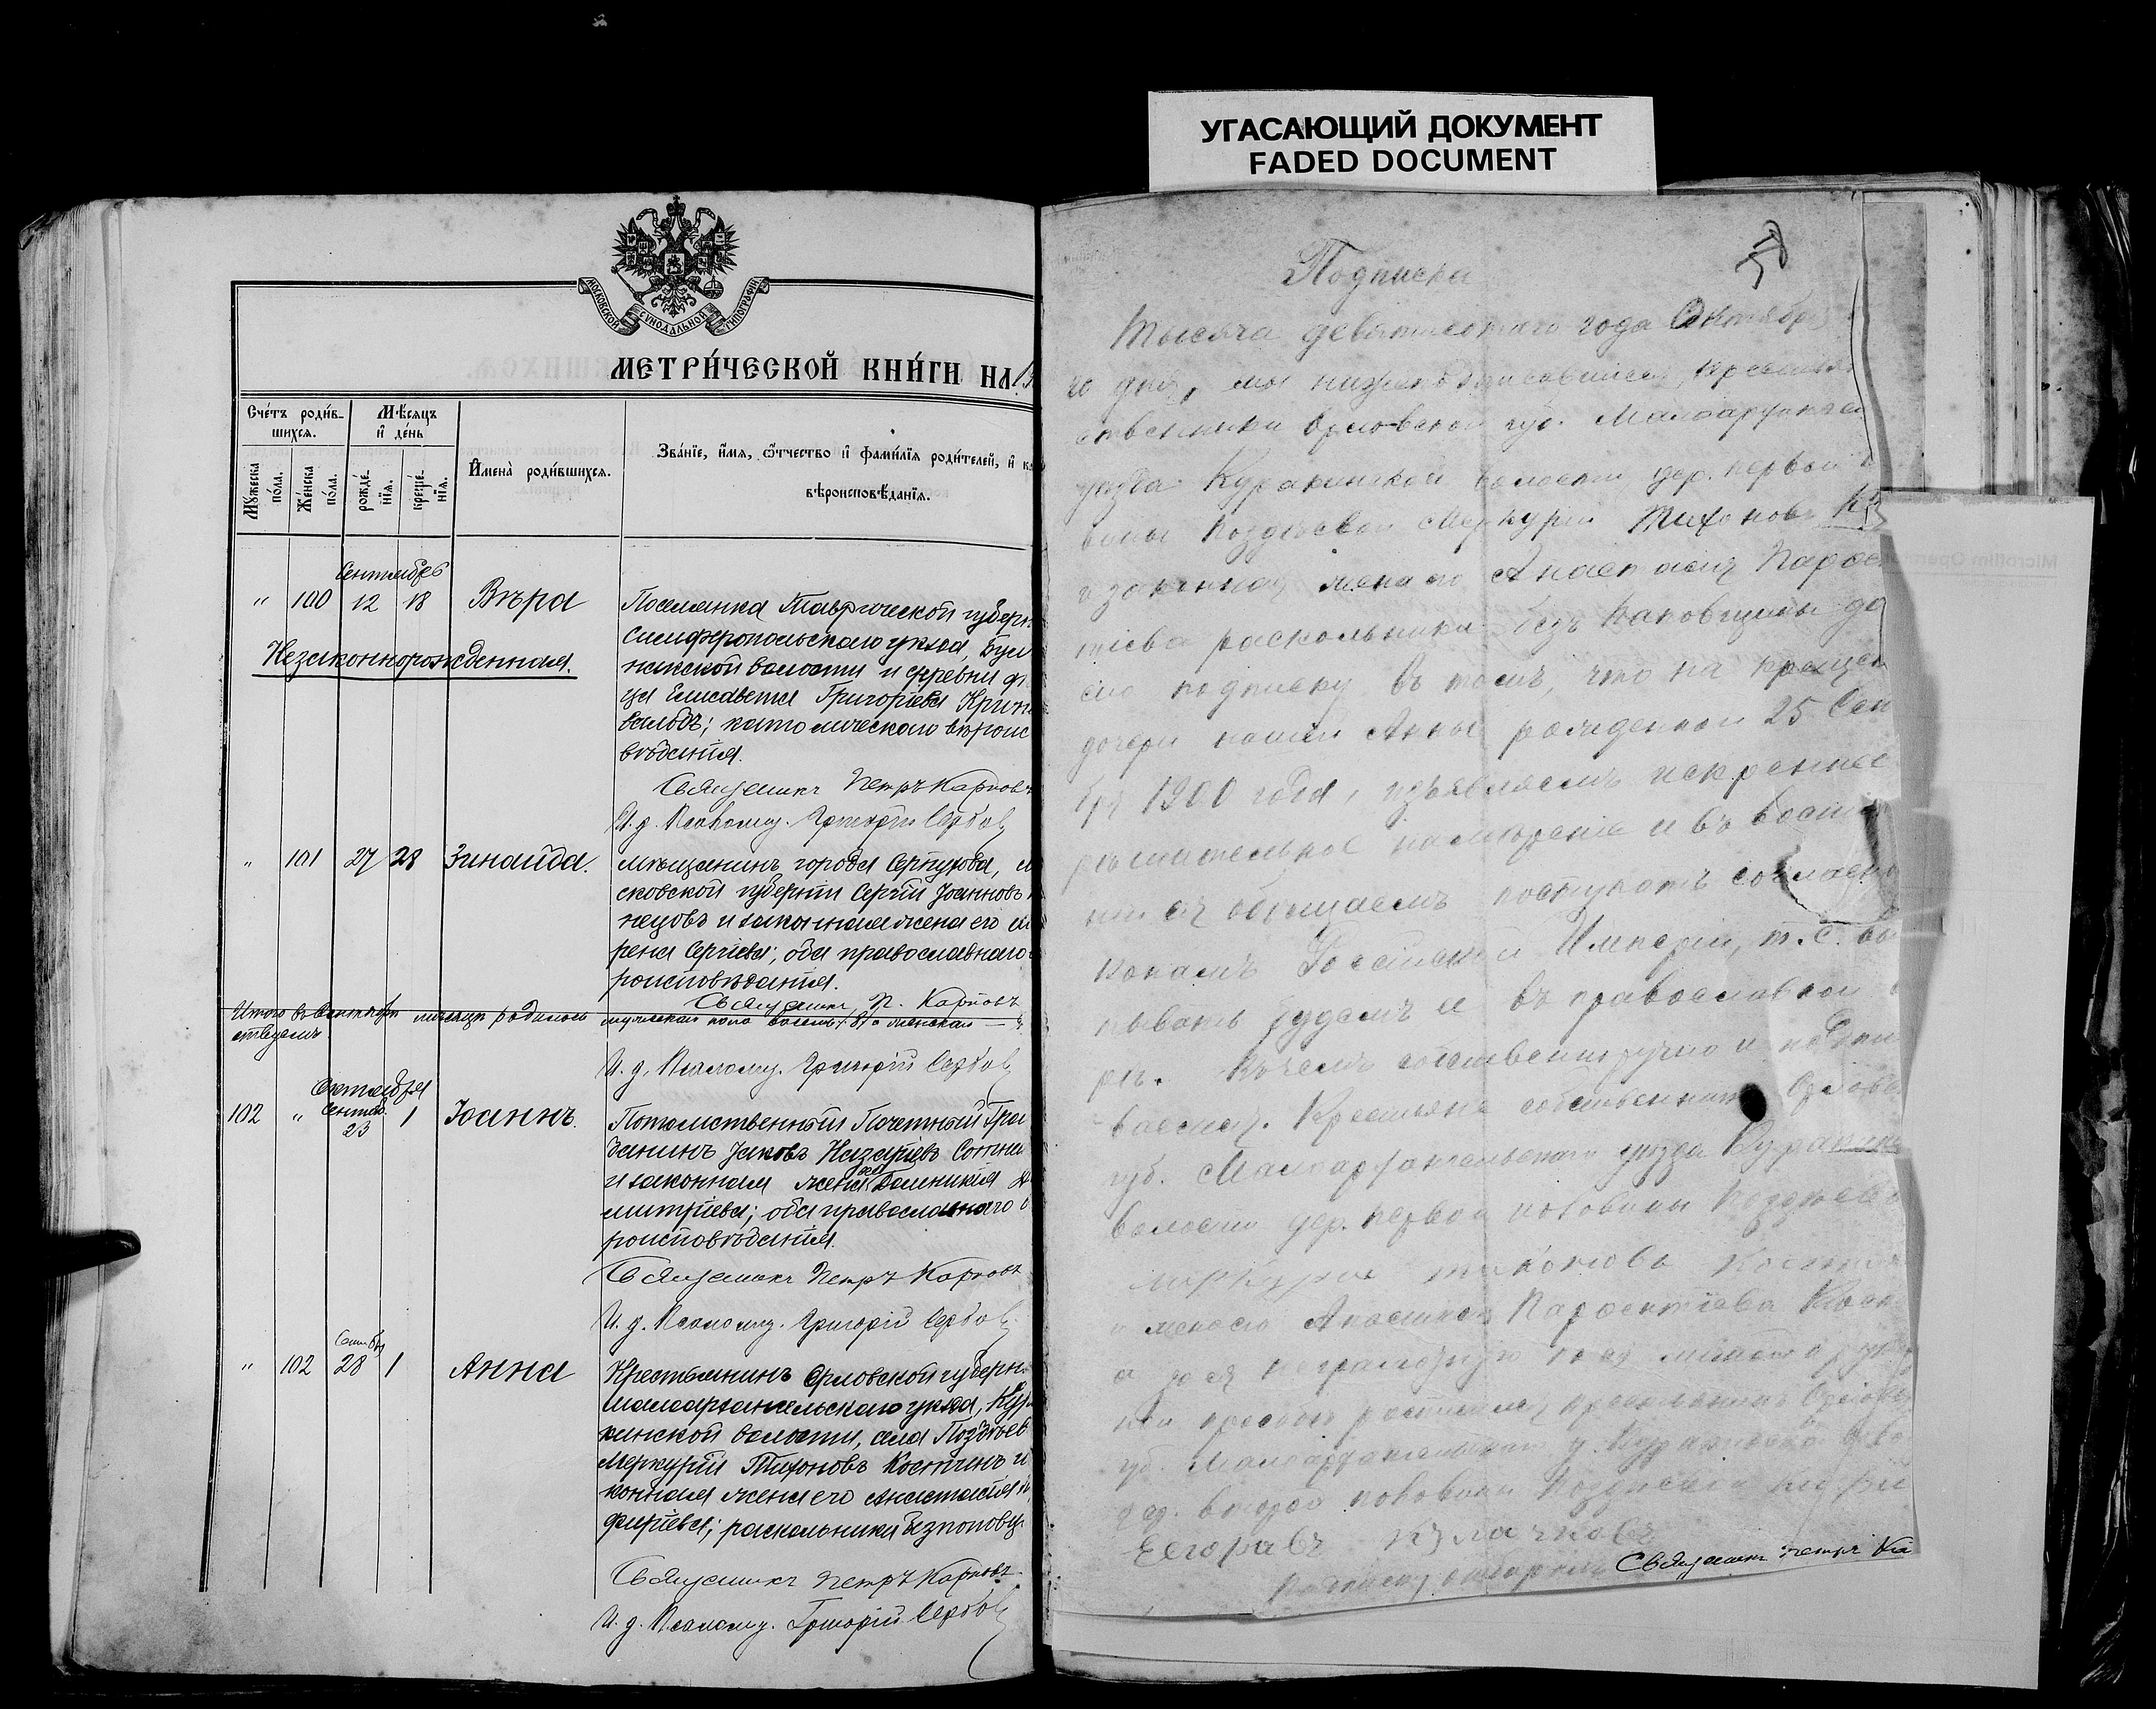 УГАСАЮЩИЙ ДОКУМЕНТ
FADED DOCUMENT
МОСКОВСКОЙ СѴНОДАЛЬНОЙ ТИПОГРАФІИ
МЕТРИ́ЧЕСКОЙ КНИ́ГИ НА
Сче́тъ роди́в-
шихся.
Мѣ́сяцъ
и҆ де́нь
Мꙋ́жеска
по́ла.
Же́нска
по́ла.
рожде́-
нїѧ.
креще-
нїѧ.
И҆мена̀ роди́вшихсѧ.
Зва́нїе, и҆́мѧ, ѻ҆́тчество и҆ фами́лїѧ роди́телей, и҆
вѣроисповѣ́данїѧ.
Сентября
" 100 12 18 Вѣра
Незаконнорожденная.
Поселянка Таврической губерн
Симферопольскаго уѣзда,
волости и деревни
Елисавета Григорьева
католическаго вѣроис
вѣданія.
Священникъ Петръ Карповъ
И. д. Псаломщ. Григорій Сербов
" 101 27 28 Зинаида.
Мѣщанинъ города Серпухова, М
сковской губерніи Сергій Іоанновъ
нецовъ и законная жена его
Сергіева; оба православнаго
роисповѣданія.
Священникъ П. Карповъ
Итого въ Сентябрѣ мѣсяцѣ родилось мужскаго пола восемь (8) а женскаго
И. д. Псаломщ. Григорій Сербов
Октября
102 " Сентяб. 23 1 Іоаннъ.
Потомственный Почетный Гра
данинъ Іаковъ Назаріевъ
и законная жена Домникія
митріева; оба православнаго
роисповѣданія.
Священникъ Петръ Карповъ
И. д. Псаломщ. Григорій Сербов
" 102 Сентябр 28 1 Анна
Крестьянинъ Орловской губерн
Малоархангельскаго уѣзда, Кур
кинской волости, села Поздѣев
Меркурій Тихоновъ Костинъ и
конная жена его Анастасія
раскольники безпоповщ
Священникъ Петръ Карповъ.
И. д. Псаломщ. Григорій Сербов
58
Подписка
Тысяча девятисотаго года Октября
го дня, мы нижеподписавшіеся, крестьян
ственники Орловской губ. Малоархангел
уѣзда Куракинской волости, дер. первой
вины Поздѣевой Меркурій Тихоновъ
и законная жена его Анастасія Парѳен
тіева раскольники безъ поповщины да
сію подписку въ томъ, что на крещен
дочери нашей Анны рожденной 25 Сен
бря 1900 года, изъявляемъ искреннее
рѣшительное намѣреніе и въ воспит
ніи ея обѣщаемъ поступать согласно
конамъ Россійской Имперіи, т. е. во
пывать будемъ ее въ православной
рѣ. Въ чемъ собственноручно и подпи
ваемся. Крестьяне собственники Орлов
губ. Малоархангельскаго уѣзда Куракин
волости дер. первой половины Поздѣев
Меркурій Тихоновъ Костин
и жена его Анастасія Парѳентіева Кост
а за ея неграмотную
просьбѣ крестьянинъ Орлов
губ. Малоархангельскаго у. Куракинской
дер. второй половины Поздѣевой
Егоравъ
Подписку отбиралъ Священникъ Петръ Ка